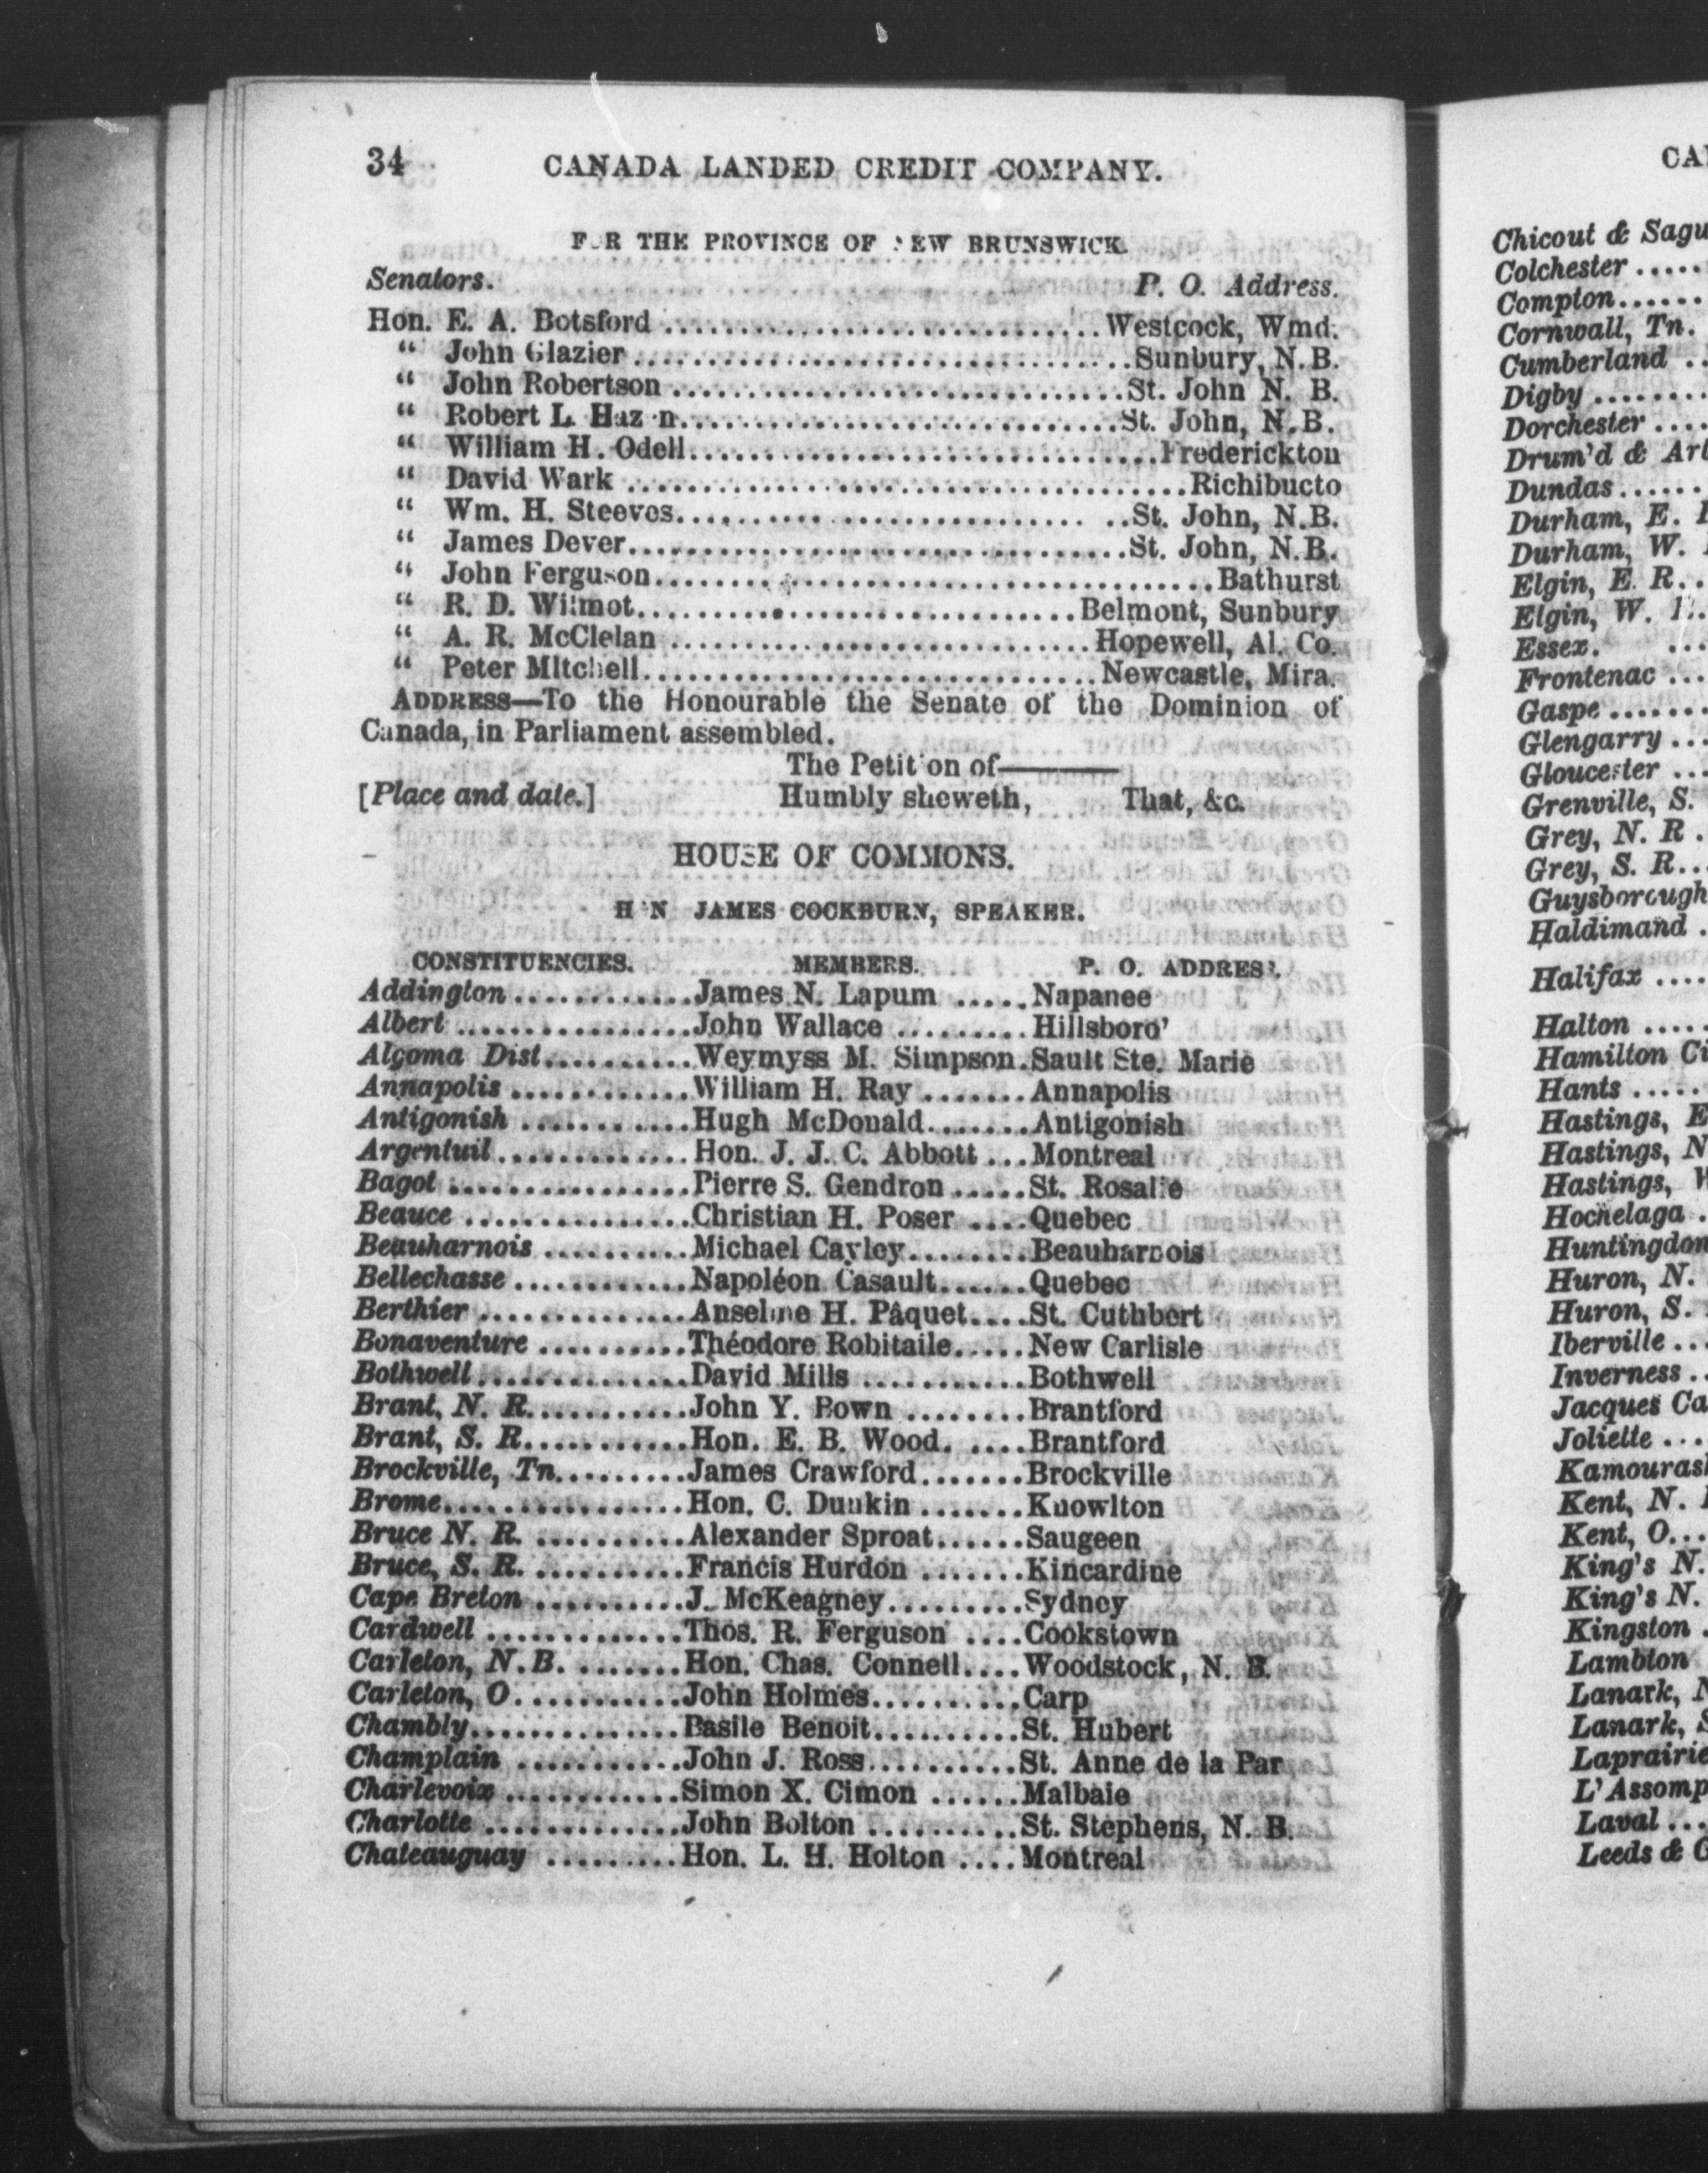 34 CANADA LANDED CREDIT COMPANY.
F R THE PROVINCE OF EW BRUNSWICK.
Senators. P. O. Address.
Hon. E. A. Botsford ............................ Westcock, Wmd.
“ John Glazier ................................ Sunbury, N.B.
“ John Robertson ............................. St. John N. B.
“ Robert L. Haz n ............................ St. John, N.B.
“ William H. Odell .............................. Frederickton
“ David Wark .................................... Richibucto
“ Wm. H. Steeves ............................ St. John, N.B.
“ James Dever ................................ St. John, N.B.
“ John Ferguson .................................... Bathurst
“ R. D. Wilmot ............................ Belmont, Sunbury
“ A. R. McClelan ........................... Hopewell, Al. Co.
“ Peter Mitchell ............................. Newcastle, Mira.
ADDRESS—To the Honourable the Senate of the Dominion of
Canada, in Parliament assembled.
The Petit on of————
[Place and date.] Humbly sheweth, That, &c.
HOUSE OF COMMONS.
H N JAMES COCKBURN, SPEAKER.
CONSTITUENCIES. MEMBERS. P. O. ADDRESS.
Addington ............ James N. Lapum ..... Napanee
Albert ................ John Wallace ......... Hillsboro'
Algoma Dist .......... Weymyss M. Simpson. Sault Ste. Marie
Annapolis ............ William H. Ray ....... Annapolis
Antigonish ........... Hugh McDonald ....... Antigonish
Argentuil ............. Hon. J. J. C. Abbott ... Montreal
Bagot ................ Pierre S. Gendron ..... St. Rosalie
Beauce ............... Christian H. Poser .... Quebec
Beauharnois .......... Michael Cayley ........ Beauharnois
Bellechasse ............ Napoléon Casault ...... Quebec
Berthier .............. Anselme H. Pâquet .... St. Cuthbert
Bonaventure .......... Théodore Robitaile ..... New Carlisle
Bothwell .............. David Mills ........... Bothwell
Brant, N. R. .......... John Y. Bown ........ Brantford
Brant, S. R. .......... Hon. E. B. Wood. .... Brantford
Brockville, Tn. ........ James Crawford ....... Brockville
Brome ................ Hon. C. Dunkin ....... Knowlton
Bruce N. R. .......... Alexander Sproat ...... Saugeen
Bruce, S. R. .......... Francis Hurdon ....... Kincardine
Cape Breton .......... J. McKeagney ......... Sydney
Cardwell ............. Thos. R. Ferguson .... Cookstown
Carleton, N.B. ....... Hon. Chas. Connell .... Woodstock, N. B.
Carleton, O ........... John Holmes .......... Carp
Chambly .............. Basile Benoit .......... St. Hubert
Champlain ........... John J. Ross .......... St. Anne de la Par
Charlevoix ............ Simon X. Cimon ...... Malbaie
Charlotte ............. John Bolton .......... St. Stephens, N. B.
Chateauguay ......... Hon. L. H. Holton .... Montreal
CA
Chicout & Sagu
Colchester .....
Compton ......
Cornwall, Tn.
Cumberland ..
Digby ........
Dorchester ....
Drum'd & Art
Dundas ......
Durham, E.
Durham, W.
Elgin, E. R. .
Elgin, W.
Essex. ...
Frontenac ...
Gaspe .......
Glengarry ...
Gloucester ...
Grenville, S.
Grey, N. R .
Grey, S. R. ..
Guysborough
Haldimand .
Halifax ....
Halton .....
Hamilton Ci
Hants .....
Hastings, E
Hastings, N
Hastings, W
Hochelaga .
Huntingdon
Huron, N.
Huron, S.
Iberville ...
Inverness ..
Jacques Ca
Joliette ...
Kamouras
Kent, N.
Kent, O...
King's N.
King's N.
Kingston .
Lambton
Lanark, N
Lanark, S
Laprairie
L'Assomp
Laval ...
Leeds & G